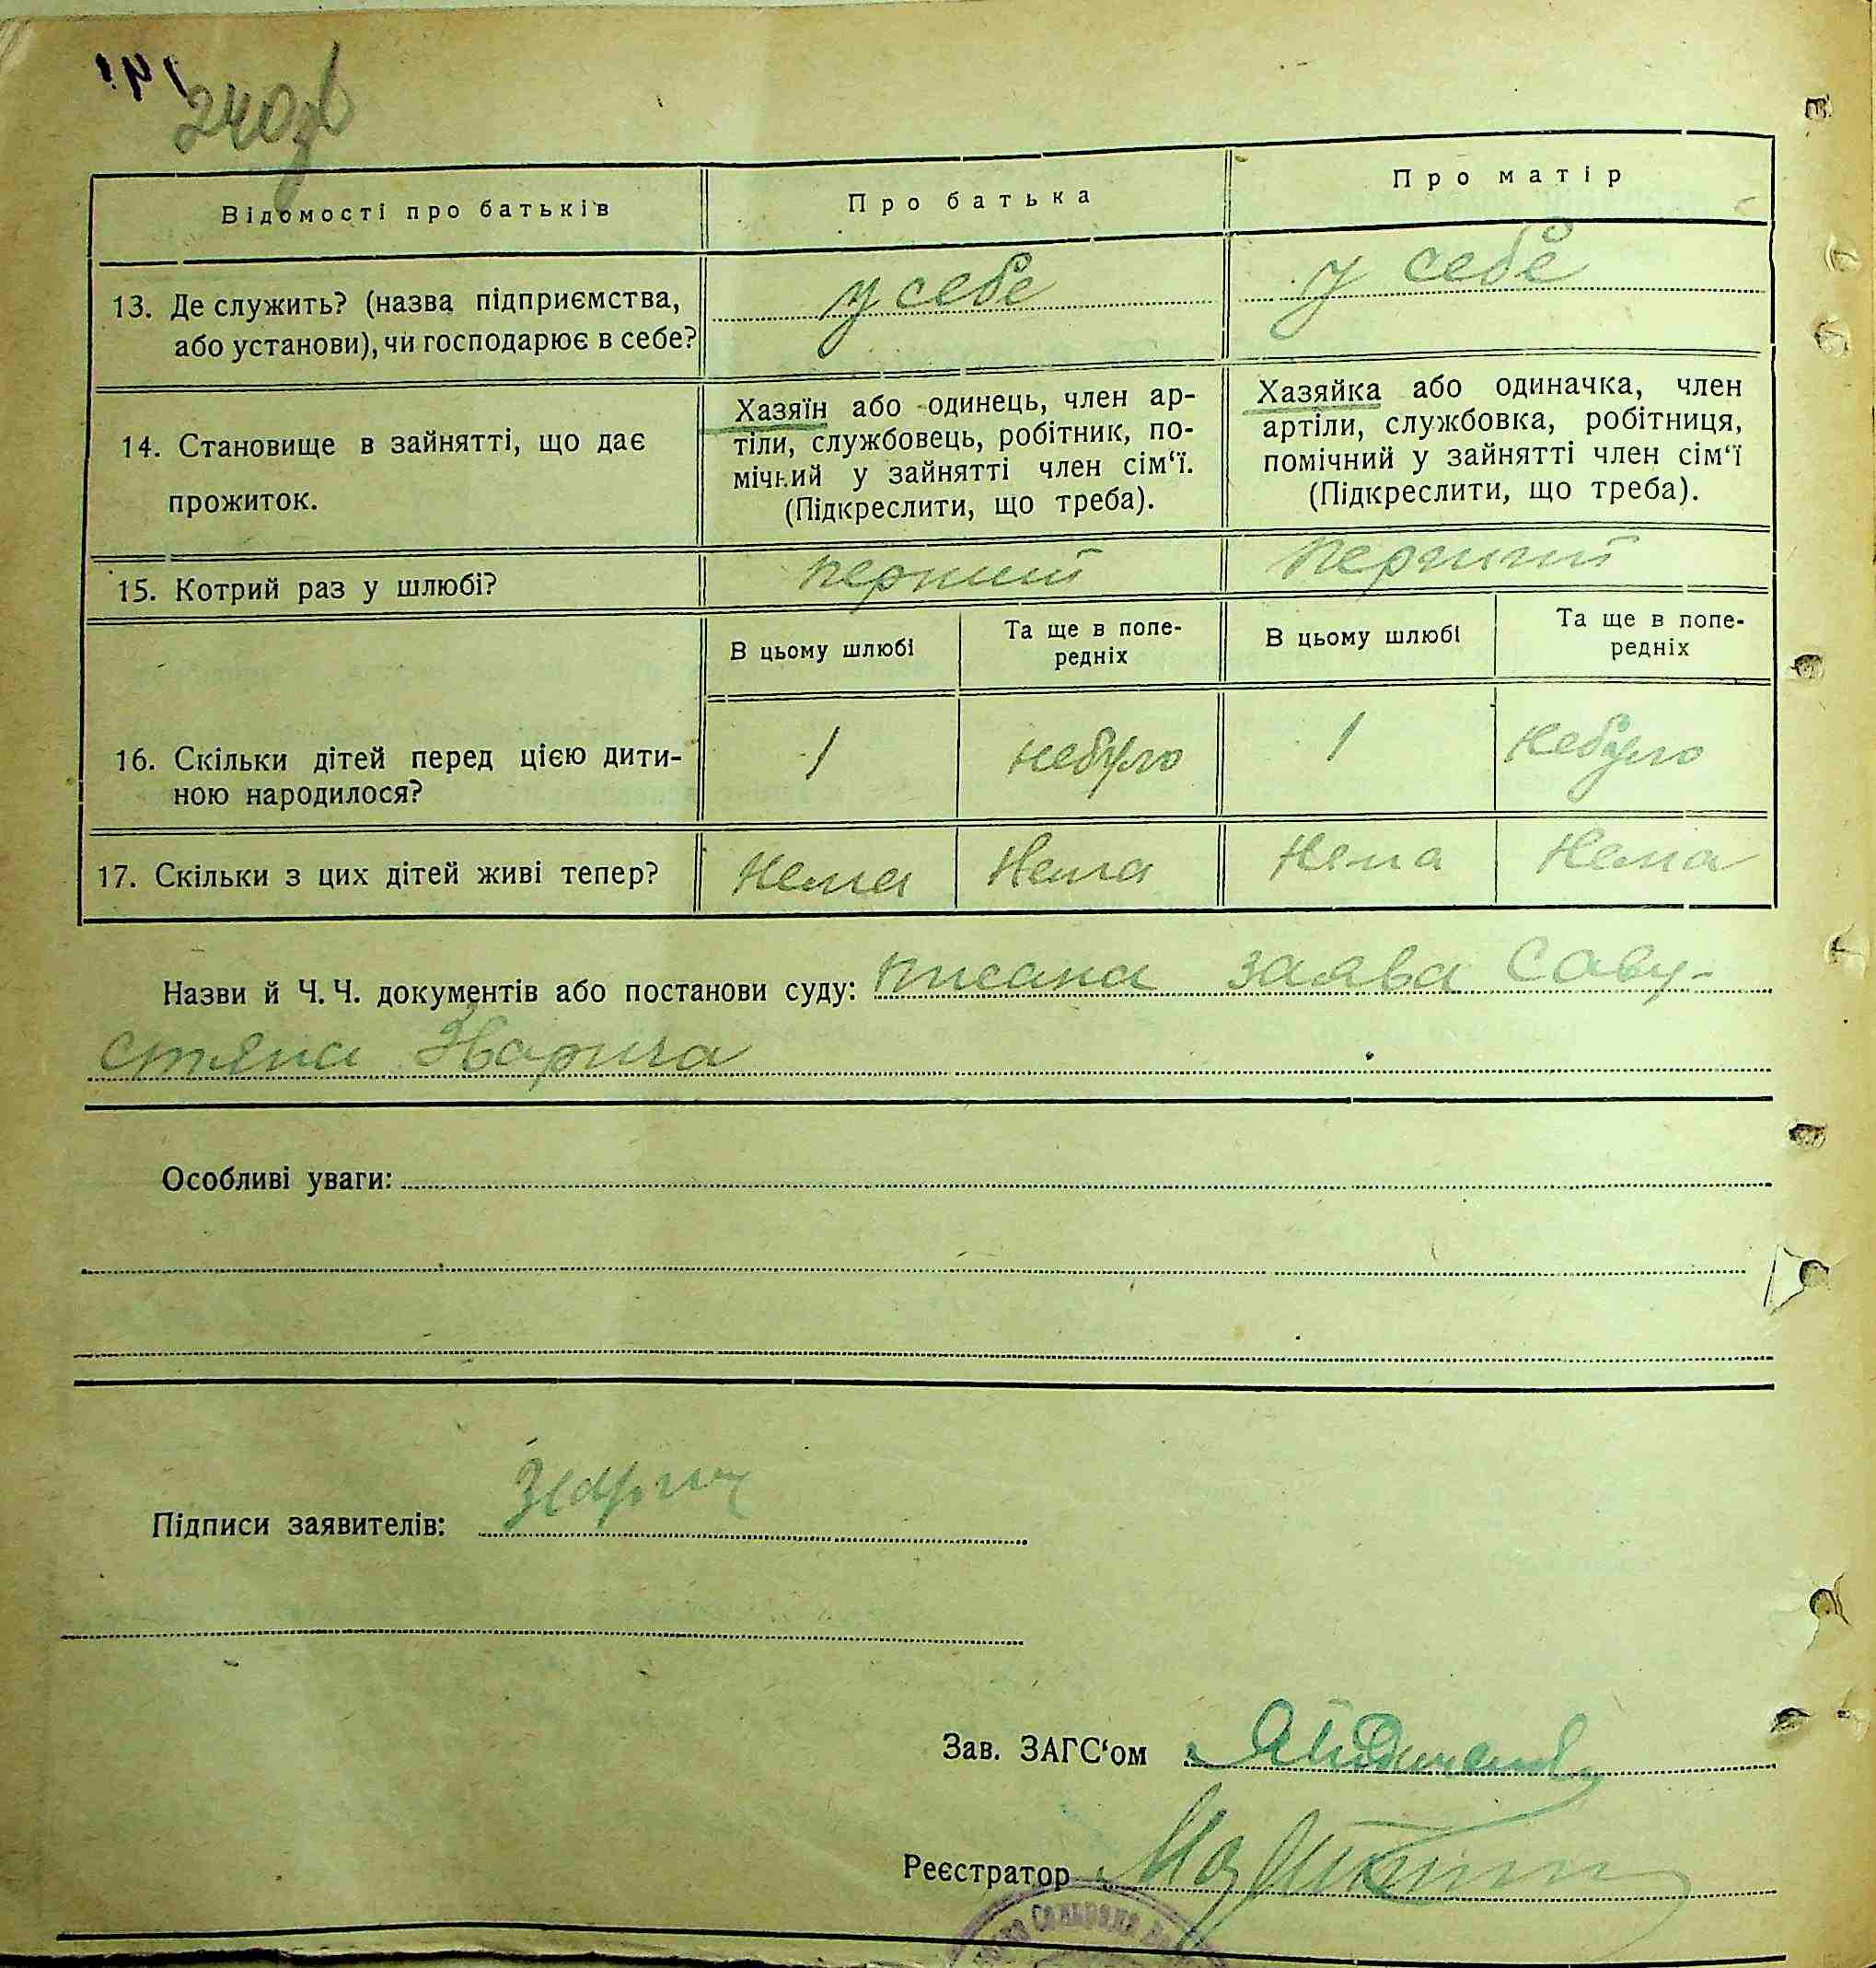 240зв
Відомості про батьків
Про батька
Про матір
13. Де служить? (назва підприємства,
або установи), чи господарює в себе?
у себе
у себе
14. Становище в зайнятті, що дає
прожиток.
Хазяїн або одинець, член ар-
тіли, службовець, робітник, по-
мічний у зайнятті член сім‘ї.
(Підкреслити, що треба).
Хазяйка або одиначка, член
артіли, службовка, робітниця,
помічний у зайнятті член сім‘ї
(Підкреслити, що треба).
15. Котрий раз у шлюбі?
перший
перший
В цьому шлюбі
Та ще в попе-
редніх
В цьому шлюбі
Та ще в попе-
редніх
16. Скільки дітей перед цією дити-
ною народилося?
1
небуло
1
небуло
17. Скільки з цих дітей живі тепер?
Нема
Нема
Нема
Нема
Назви й Ч. Ч. документів або постанови суду: писана заява Саву-
стяна Зварича
Особливі уваги:
Підписи заявителів:
Зав. ЗАГС‘ом
Реєстратор